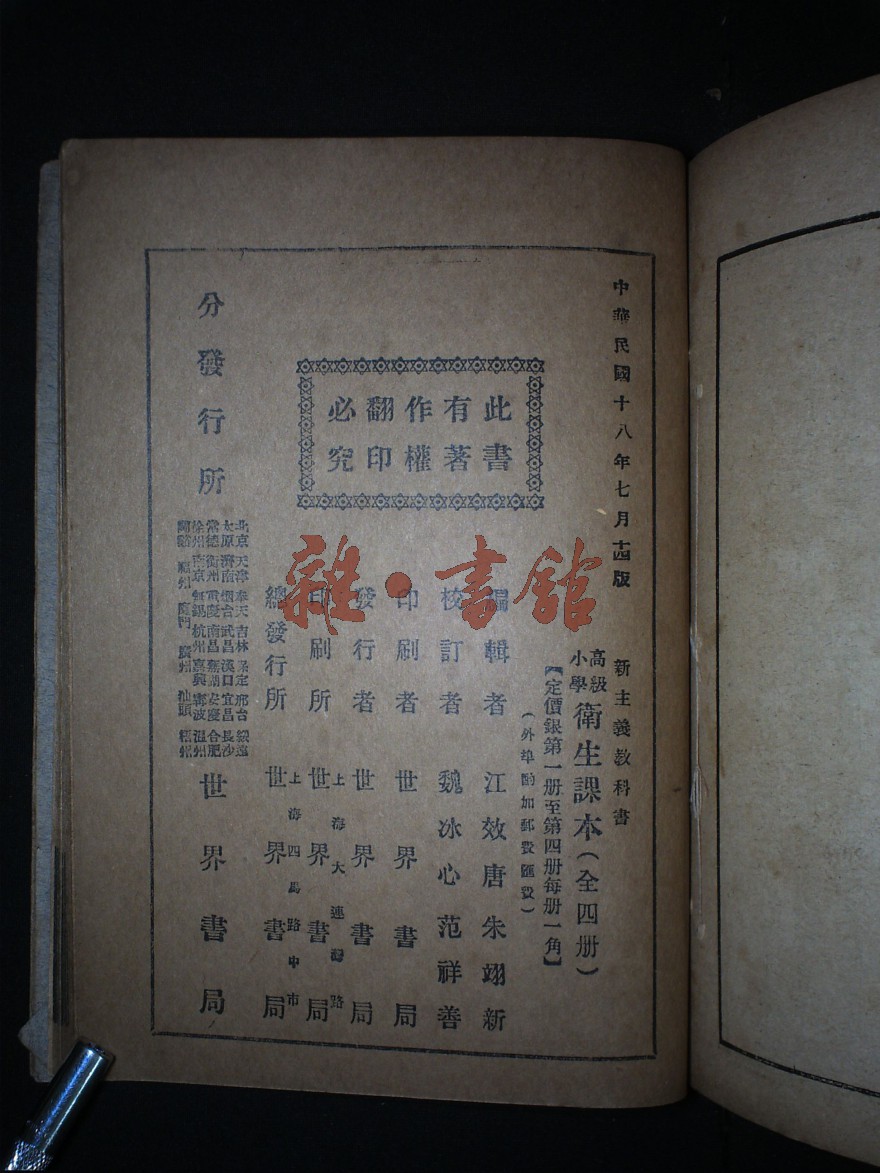 中華民國十八年七月十四版
新主義教科書
高級小學衛生課本(全四册)
【定價銀第一册至第四册每册一角】
(外埠酌加郵費匯費)
此書有著作權翻印必究
編輯者 江效唐 朱翊新
校訂者 魏冰心 范祥善
印刷者 世界書局
發行者 世界書局
印刷所 上海大連灣路 世界書局
總發行所 上海四馬路中市 世界書局
分發行所
北京 天津 奉天 吉林 保定 邢台 綏遠
太原 濟南 烟台 武昌 漢口 宜昌 長沙
常德 衡州 重慶 南昌 蕪湖 安慶 合肥
徐州 南京 無錫 杭州 嘉興 寧波 溫州
福州 廈門 廣州 汕頭 梧州
世界書局
雜·書館